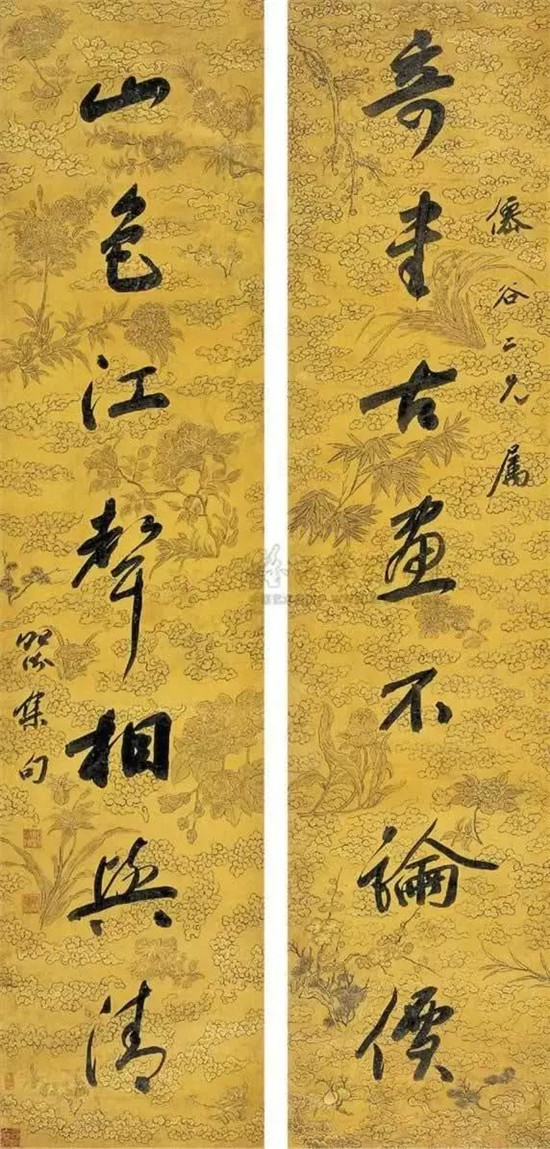 奇書古畫不論價
僊谷二兄屬
山色江聲相與清
集句